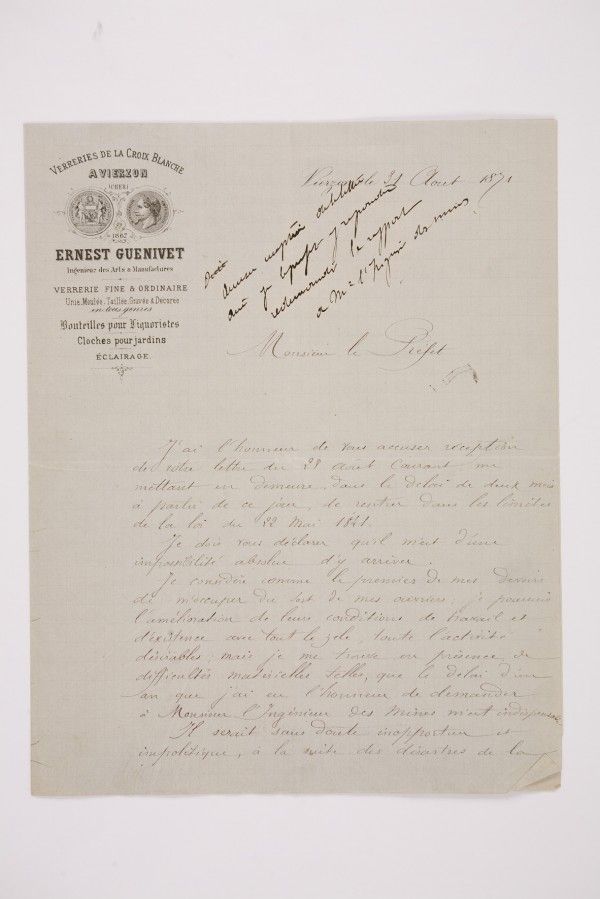 VERRERIES DE LA CROIX BLANCHE
A VIERZON
(CHER)
1867
ERNEST GUENIVET
Ingénieur des Arts & Manufactures
VERRERIE FINE & ORDINAIRE
Unie, Moulée, Taillée, Gravée & Décorée
en tous genres
Bouteilles pour Liquoristes
Cloches pour jardins
ÉCLAIRAGE.
Vierzon le 31 Août 1871
de
que je puisse y répondre
redemander le rapport
à Mr l'Ingénieur des mines
Monsieur le Préfet
J'ai l'honneur de vous accuser réception
de votre lettre du 28 Août Courant me
mettant en demeure, dans le délai de deux mois
à partir de ce jour, de rentrer dans les limites
de la loi du 22 Mai 1841.
Je dois vous déclarer qu'il m'est d'une
impossibilité absolue d'y arriver.
Je considère comme le premier de mes devoirs
de m'occuper du sort de mes ouvriers, je poursuis
l'amélioration de leurs conditions de travail et
d'existence avec tout le zèle, toute l'activité
désirables; mais je me trouve en présence de
difficultés matérielles telles, que le délai d'un
an que j'ai eu l'honneur de demander
à Monsieur l'Ingénieur des Mines m'est indispensable
Il serait sans doute inopportun et
impolitique, à la suite des désastres de la